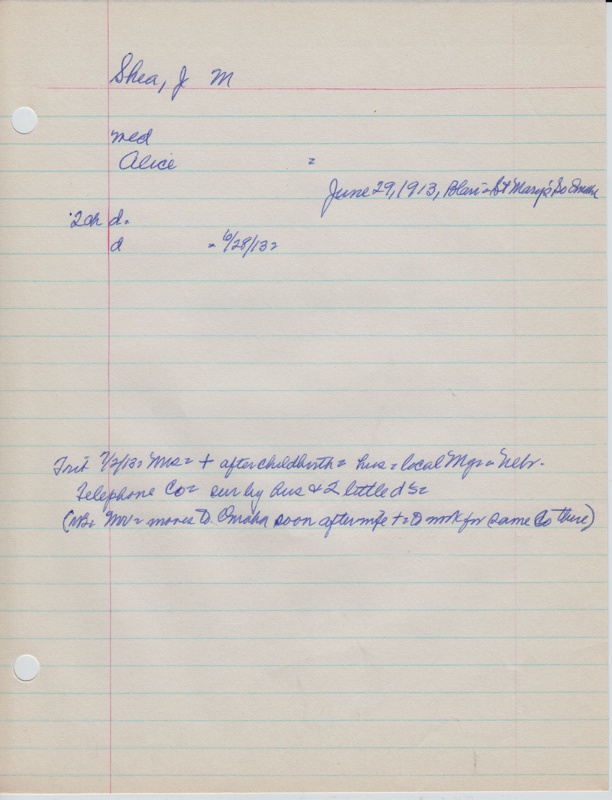 Shea, J M
med
Alice =
June 29, 1913, Blair = St Mary's So Omaha
2 ch d.
d = 6/28/13 =
Trib 7/2/13 = Mrs = + after childbirth = hus = local Mgr = Nebr.
Telephone Co = sur by hus & 2 little ds =
(NB = Mr = moves to Omaha soon after wife + = to work for same Co there)